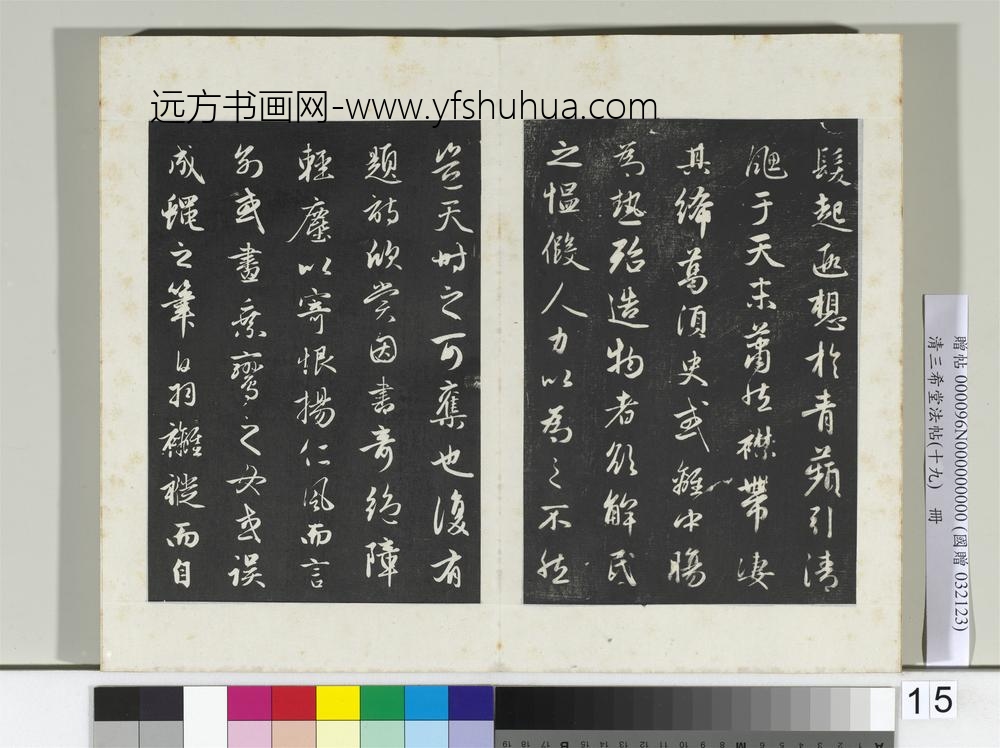 远方书画网-www.yfshuhua.com
髮起遐想於青蘋引清
颸于天末蕭然襟帶凄
其絺葛須臾或離中暘
為熱殆造物者欲解民
之愠假人力以為之不然
豈天時之可奪也復有
題詩欣赏因書奇絶障
輕塵以寄恨揚仁風而言
別或畫乘鸞之女或误
成蠅之筆白羽襹褷而自
贈帖 000096N000000000 (國贈 032123)
清三希堂法帖(十九) 冊
15